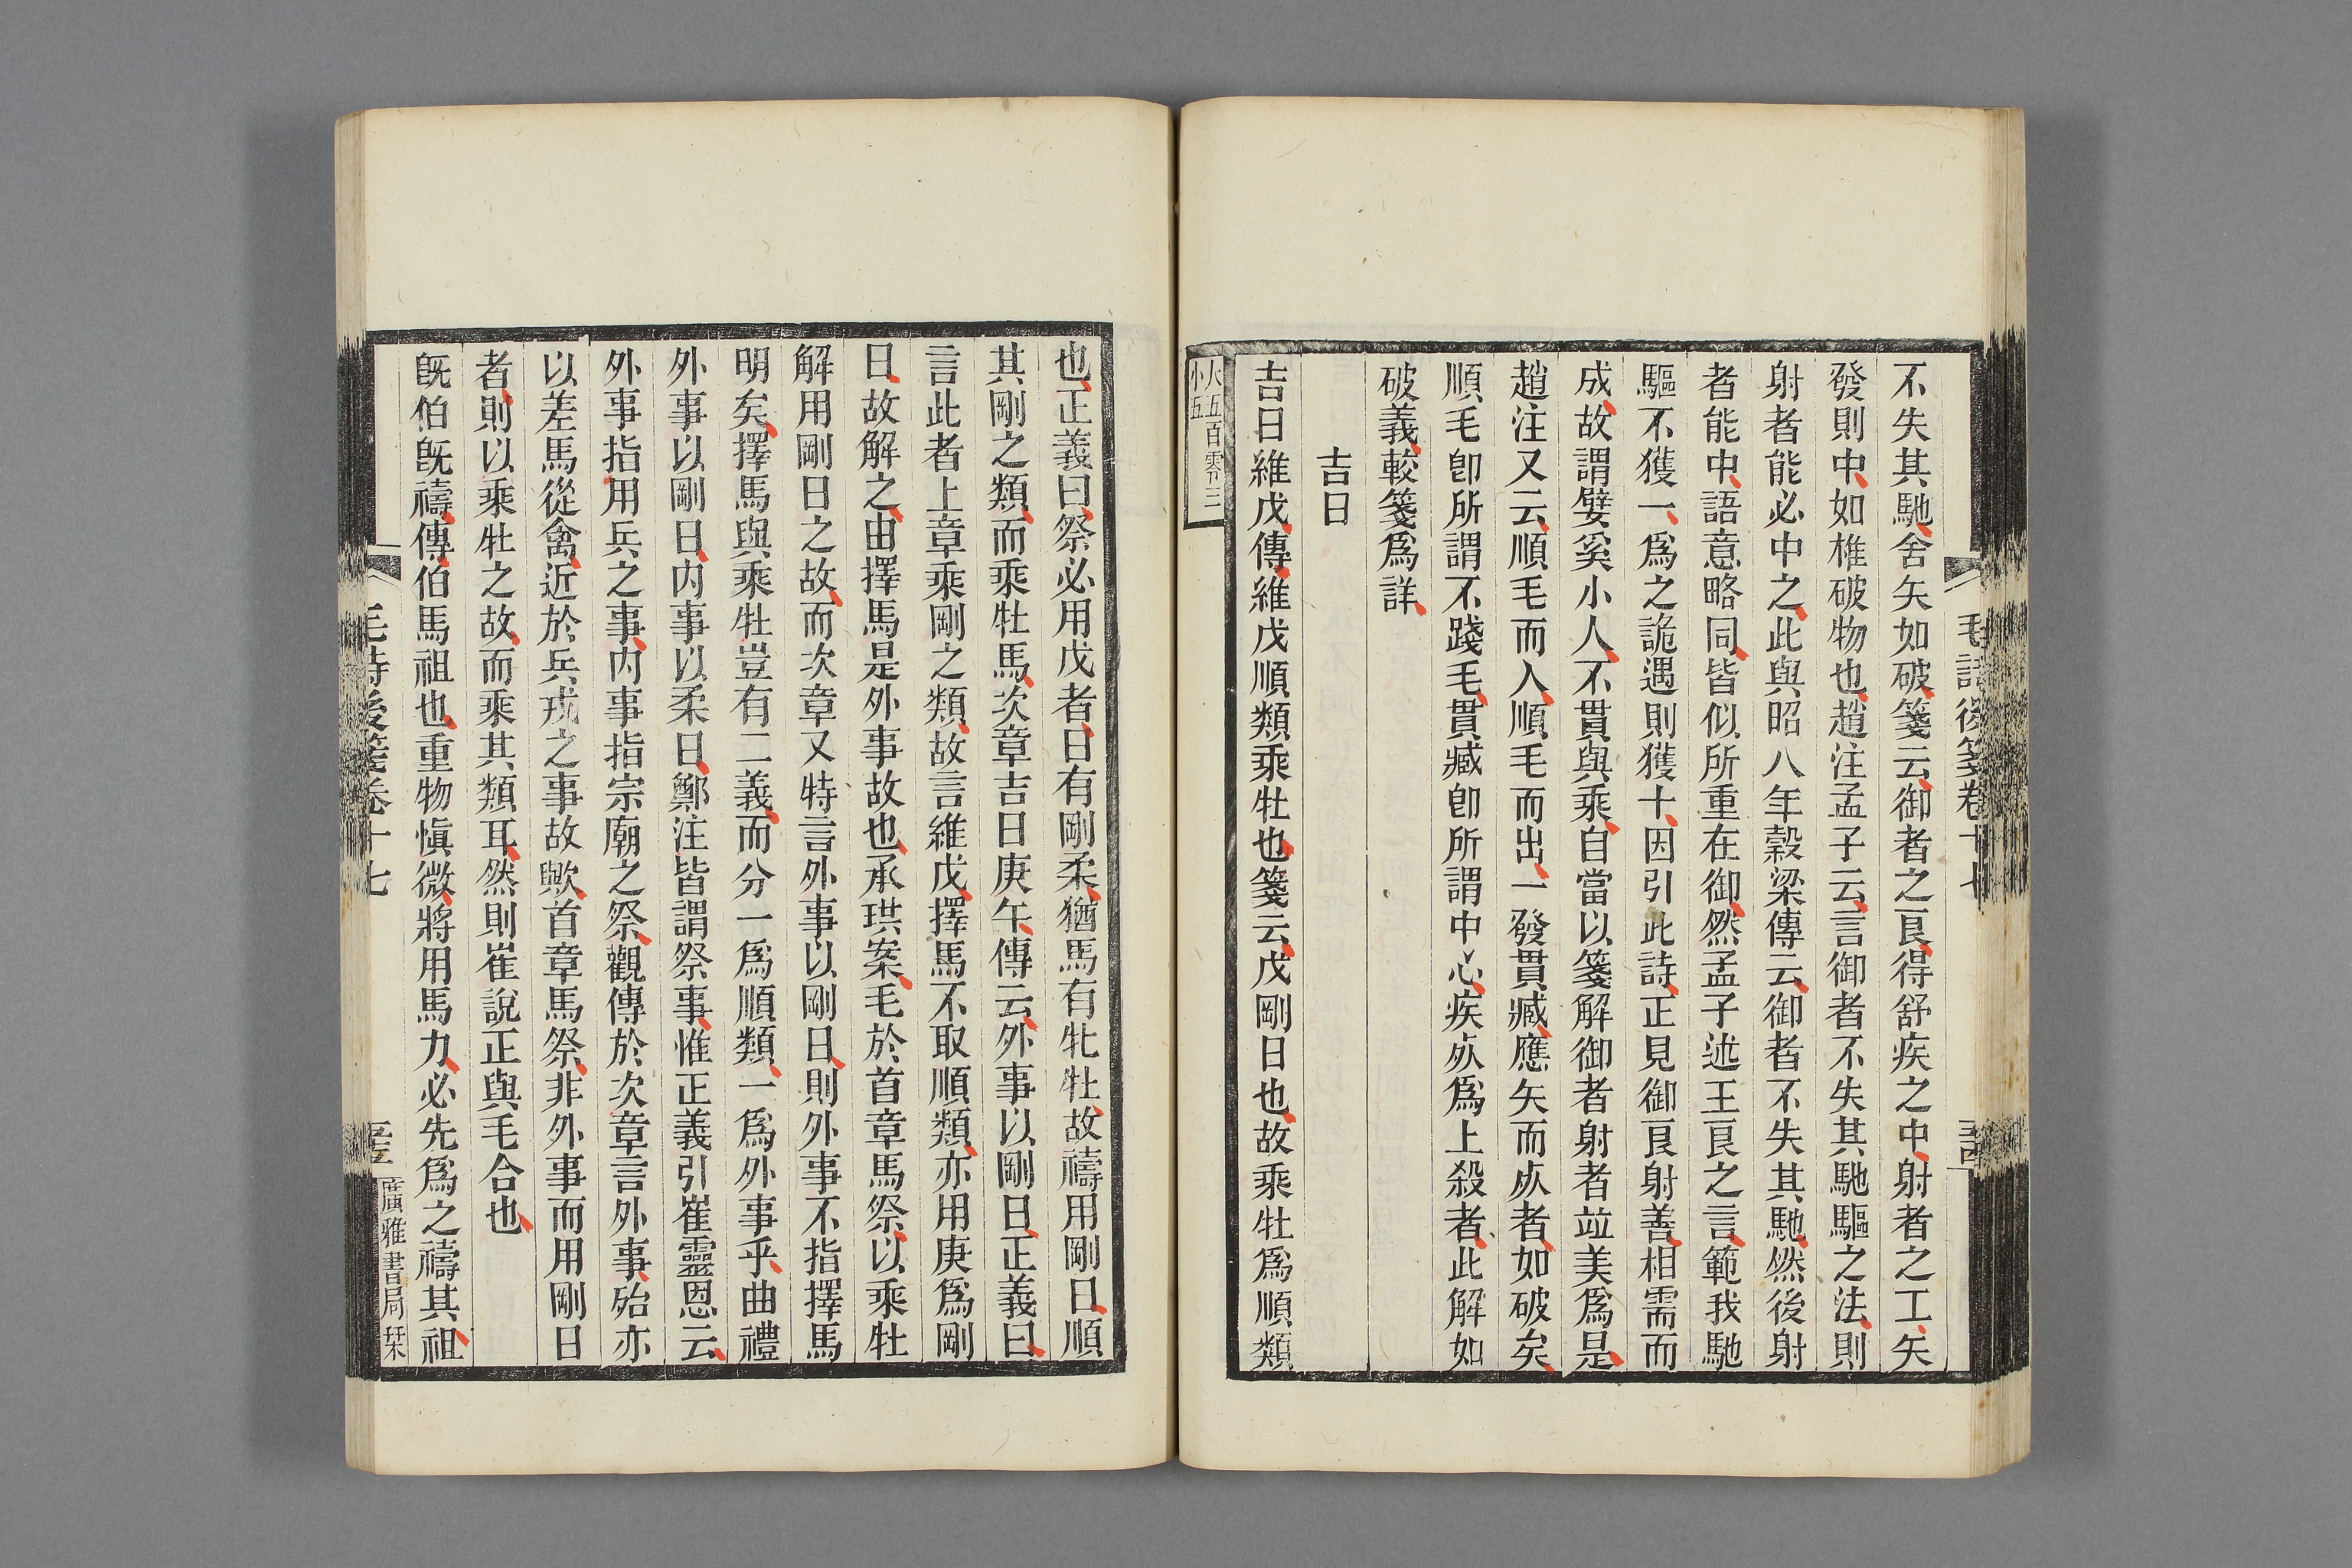 不失其馳舍矢如破箋云御者之良得舒疾之中射者之工矢
發則中如椎破物也趙注孟子云言御者不失其馳驅之法則
射者能必中之此與昭八年穀梁傳云御者不失其馳然後射
者能中語意略同皆似所重在御然孟子述王良之言範我馳
驅不獲一爲之詭遇則獲十因引此詩正見御良射善相需而
成故謂嬖奚小人不貫與乘自當以箋解御者射者竝美爲是
趙注又云順毛而入順毛而出一發貫臧應矢而𣦸者如破矣
順毛卽所謂不踐毛貫臧卽所謂中心疾𣦸爲上殺者此解如
破義較箋爲詳
吉日
吉日維戊傳維戊順類乘牡也箋云戊剛日也故乘牡爲順類
大五百零三
小五
毛詩後箋卷十七
也正義曰祭必用戊者日有剛柔猶馬有牝牡故禱用剛日順
其剛之類而乘牡馬次章吉日庚午傳云外事以剛日正義曰
言此者上章乘剛之類故言維戊擇馬不取順類亦用庚爲剛
日故解之由擇馬是外事故也承珙案毛於首章馬祭以乘牡
解用剛日之故而次章又特言外事以剛日則外事不指擇馬
明矣擇馬與乘牡豈有二義而分一爲順類一爲外事乎曲禮
外事以剛日內事以柔日鄭注皆謂祭事惟正義引崔靈恩云
外事指用兵之事內事指宗廟之祭觀傳於次章言外事殆亦
以差馬從禽近於兵戎之事故歟首章馬祭非外事而用剛日
者則以乘牡之故而乘其類耳然則崔說正與毛合也
旣伯旣禱傳伯馬祖也重物愼微將用馬力必先爲之禱其祖
毛詩後箋卷十七
廣雅書局栞